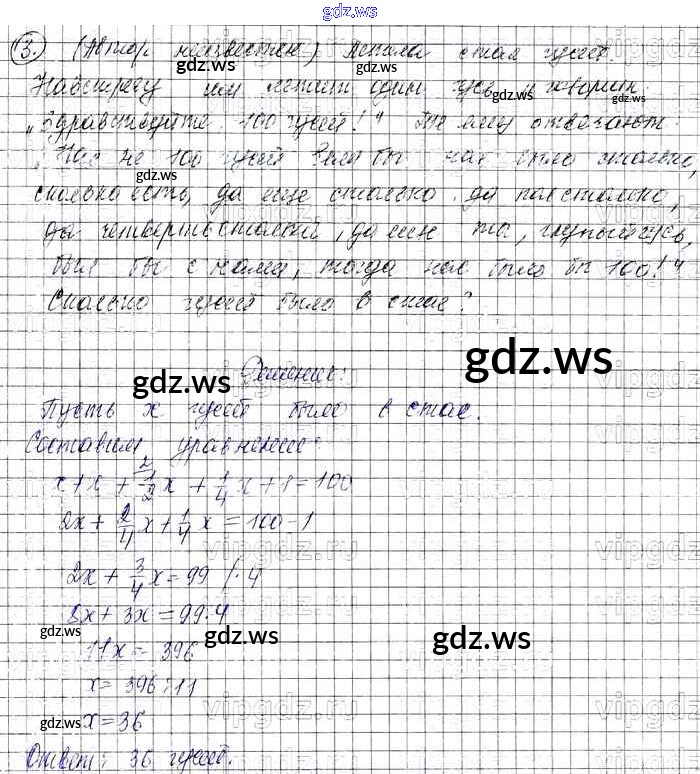 gdz.ws
3. (Автор неизвестен.) Летела стая гусей.
Навстречу им летит один гусь и говорит:
„Здравствуйте, 100 гусей!" Те ему отвечают:
„Нас не 100 гусей. Если бы нас было столько,
сколько есть, да еще столько, да полстолько,
да четвертьстолько, да еще ты, глупый гусь,
был бы с нами, тогда нас было бы 100!"
Сколько гусей было в стае?
Решение:
Пусть x гусей было в стае.
Составим уравнение:
x + x + 1/2 x + 1/4 x + 1 = 100
2x + 2/4 x + 1/4 x = 100 - 1
2x + 3/4 x = 99 /· 4
8x + 3x = 99·4
11x = 396
x = 396:11
x = 36
Ответ: 36 гусей.